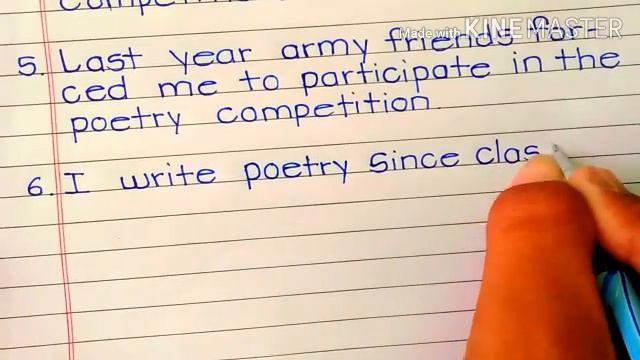 Made with KINEMASTER
5. Last year army friends for-
ced me to participate in the
poetry competition.
6. I write poetry since clas